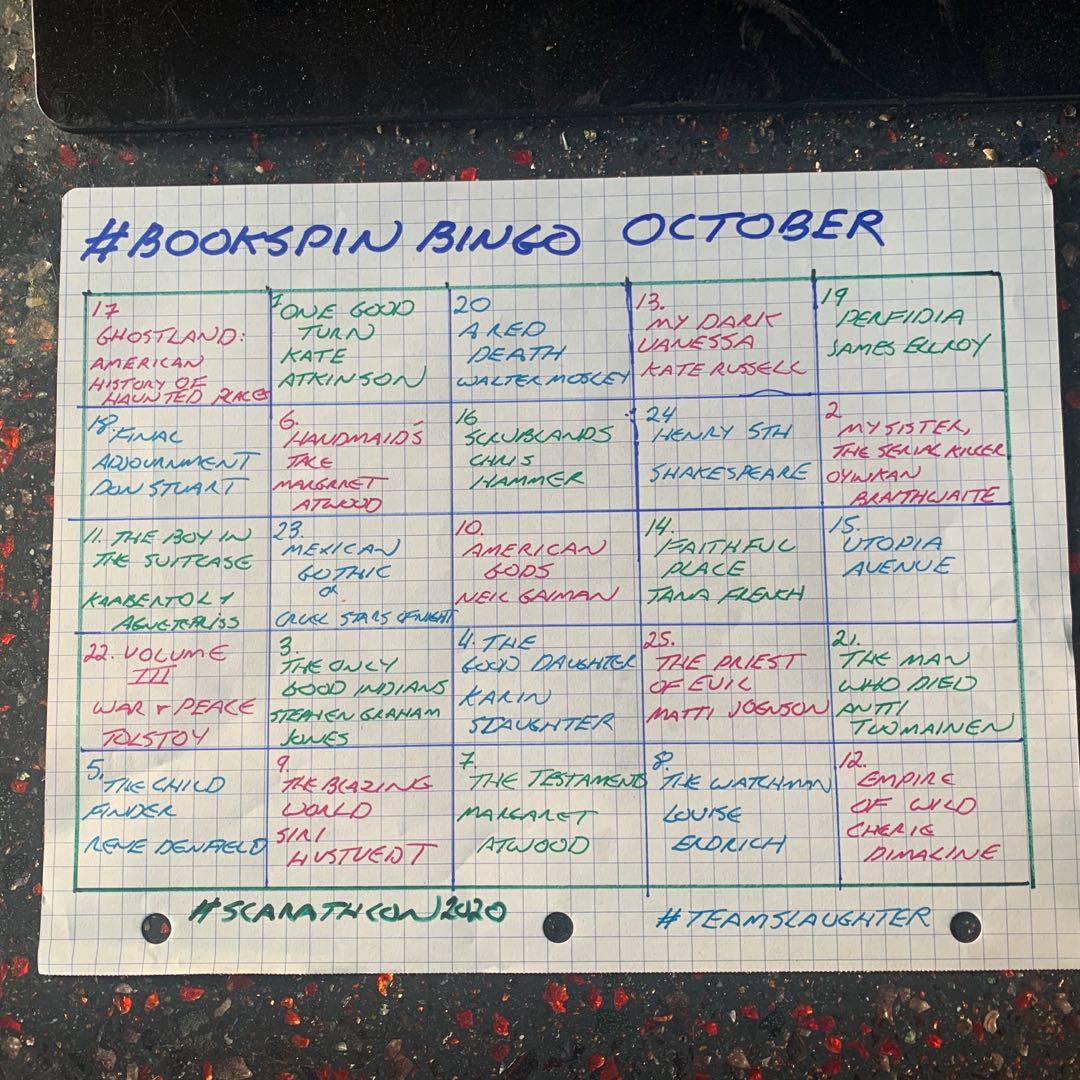 #BOOKSPIN BINGO OCTOBER
17
GHOSTLAND:
AMERICAN
HISTORY OF
HAUNTED PLACES
1 ONE GOOD
TURN
KATE
ATKINSON
20
A RED
DEATH
WALTER MOSLEY
13.
MY DARK
VANESSA
KATE RUSSELL
19
PERFIDIA
JAMES ELLROY
18. FINAL
ADJOURNMENT
DON STUART
6.
HANDMAID'S
TALE
MARGARET
ATWOOD
16
SCRUBLANDS
CHRIS
HAMMER
24
HENRY 5TH
SHAKESPEARE
2
MY SISTER,
THE SERIAL KILLER
OYINKAN
BRAITHWAITE
11. THE BOY IN
THE SUITCASE
KAABERTOL &
AGNETE FRISS
23.
MEXICAN
GOTHIC
OR
CRUEL STARS OF NIGHT
10.
AMERICAN
GODS
NEIL GAIMAN
14.
FAITHFUL
PLACE
TANA FRENCH
15.
UTOPIA
AVENUE
22. VOLUME
III
WAR & PEACE
TOLSTOY
3.
THE ONLY
GOOD INDIANS
STEPHEN GRAHAM
JONES
4. THE
GOOD DAUGHTER
KARIN
SLAUGHTER
25.
THE PRIEST
OF EVIL
MATTI JOENSON
21.
THE MAN
WHO DIED
ANTTI
TUOMAINEN
5.
THE CHILD
FINDER
RENE DENFIELD
9.
THE BLAZING
WORLD
SIRI
HUSTVEDT
7.
THE TESTAMENTS
MARGARET
ATWOOD
8.
THE WATCHMAN
LOUISE
ERDRICH
12.
EMPIRE
OF WILD
CHERIE
DIMALINE
#SCARATHCON2020
#TEAMSLAUGHTER